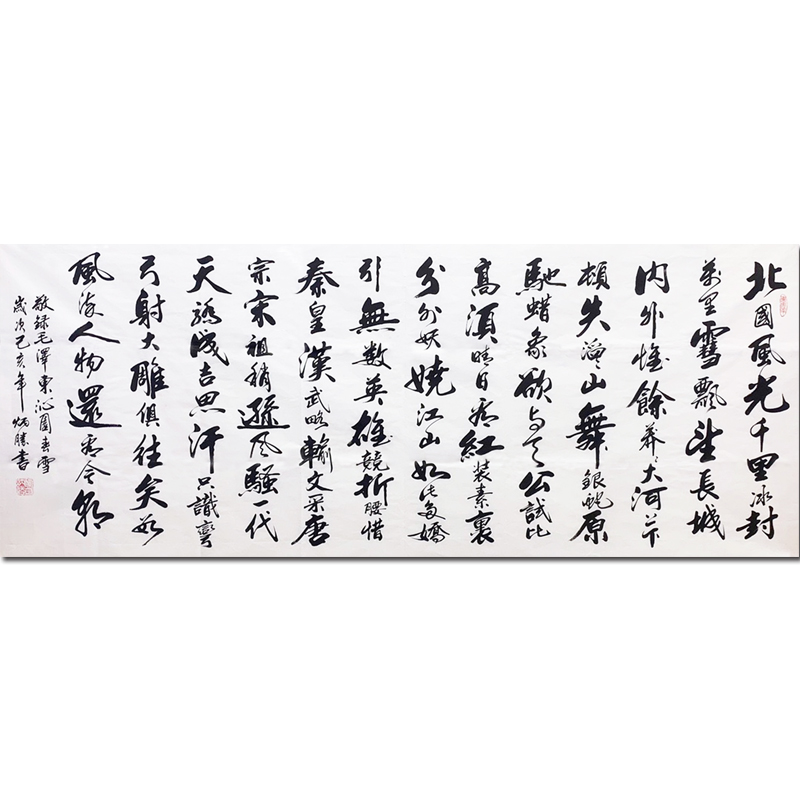 北國風光千里冰封
萬里雪飄望長城
內外惟餘莽々大河上下
頓失滔々山舞銀蛇原
馳蠟象欲与天公試比
高須晴日看紅裝素裹
分外妖嬈江山如此多嬌
引無数英雄競折腰惜
秦皇漢武略輸文采唐
宗宋祖稍遜风騷一代
天驕成吉思汗只識彎
弓射大雕俱往矣数
風流人物還看今朝
敬録毛澤東沁園春雪
歲次己亥年炳勝書